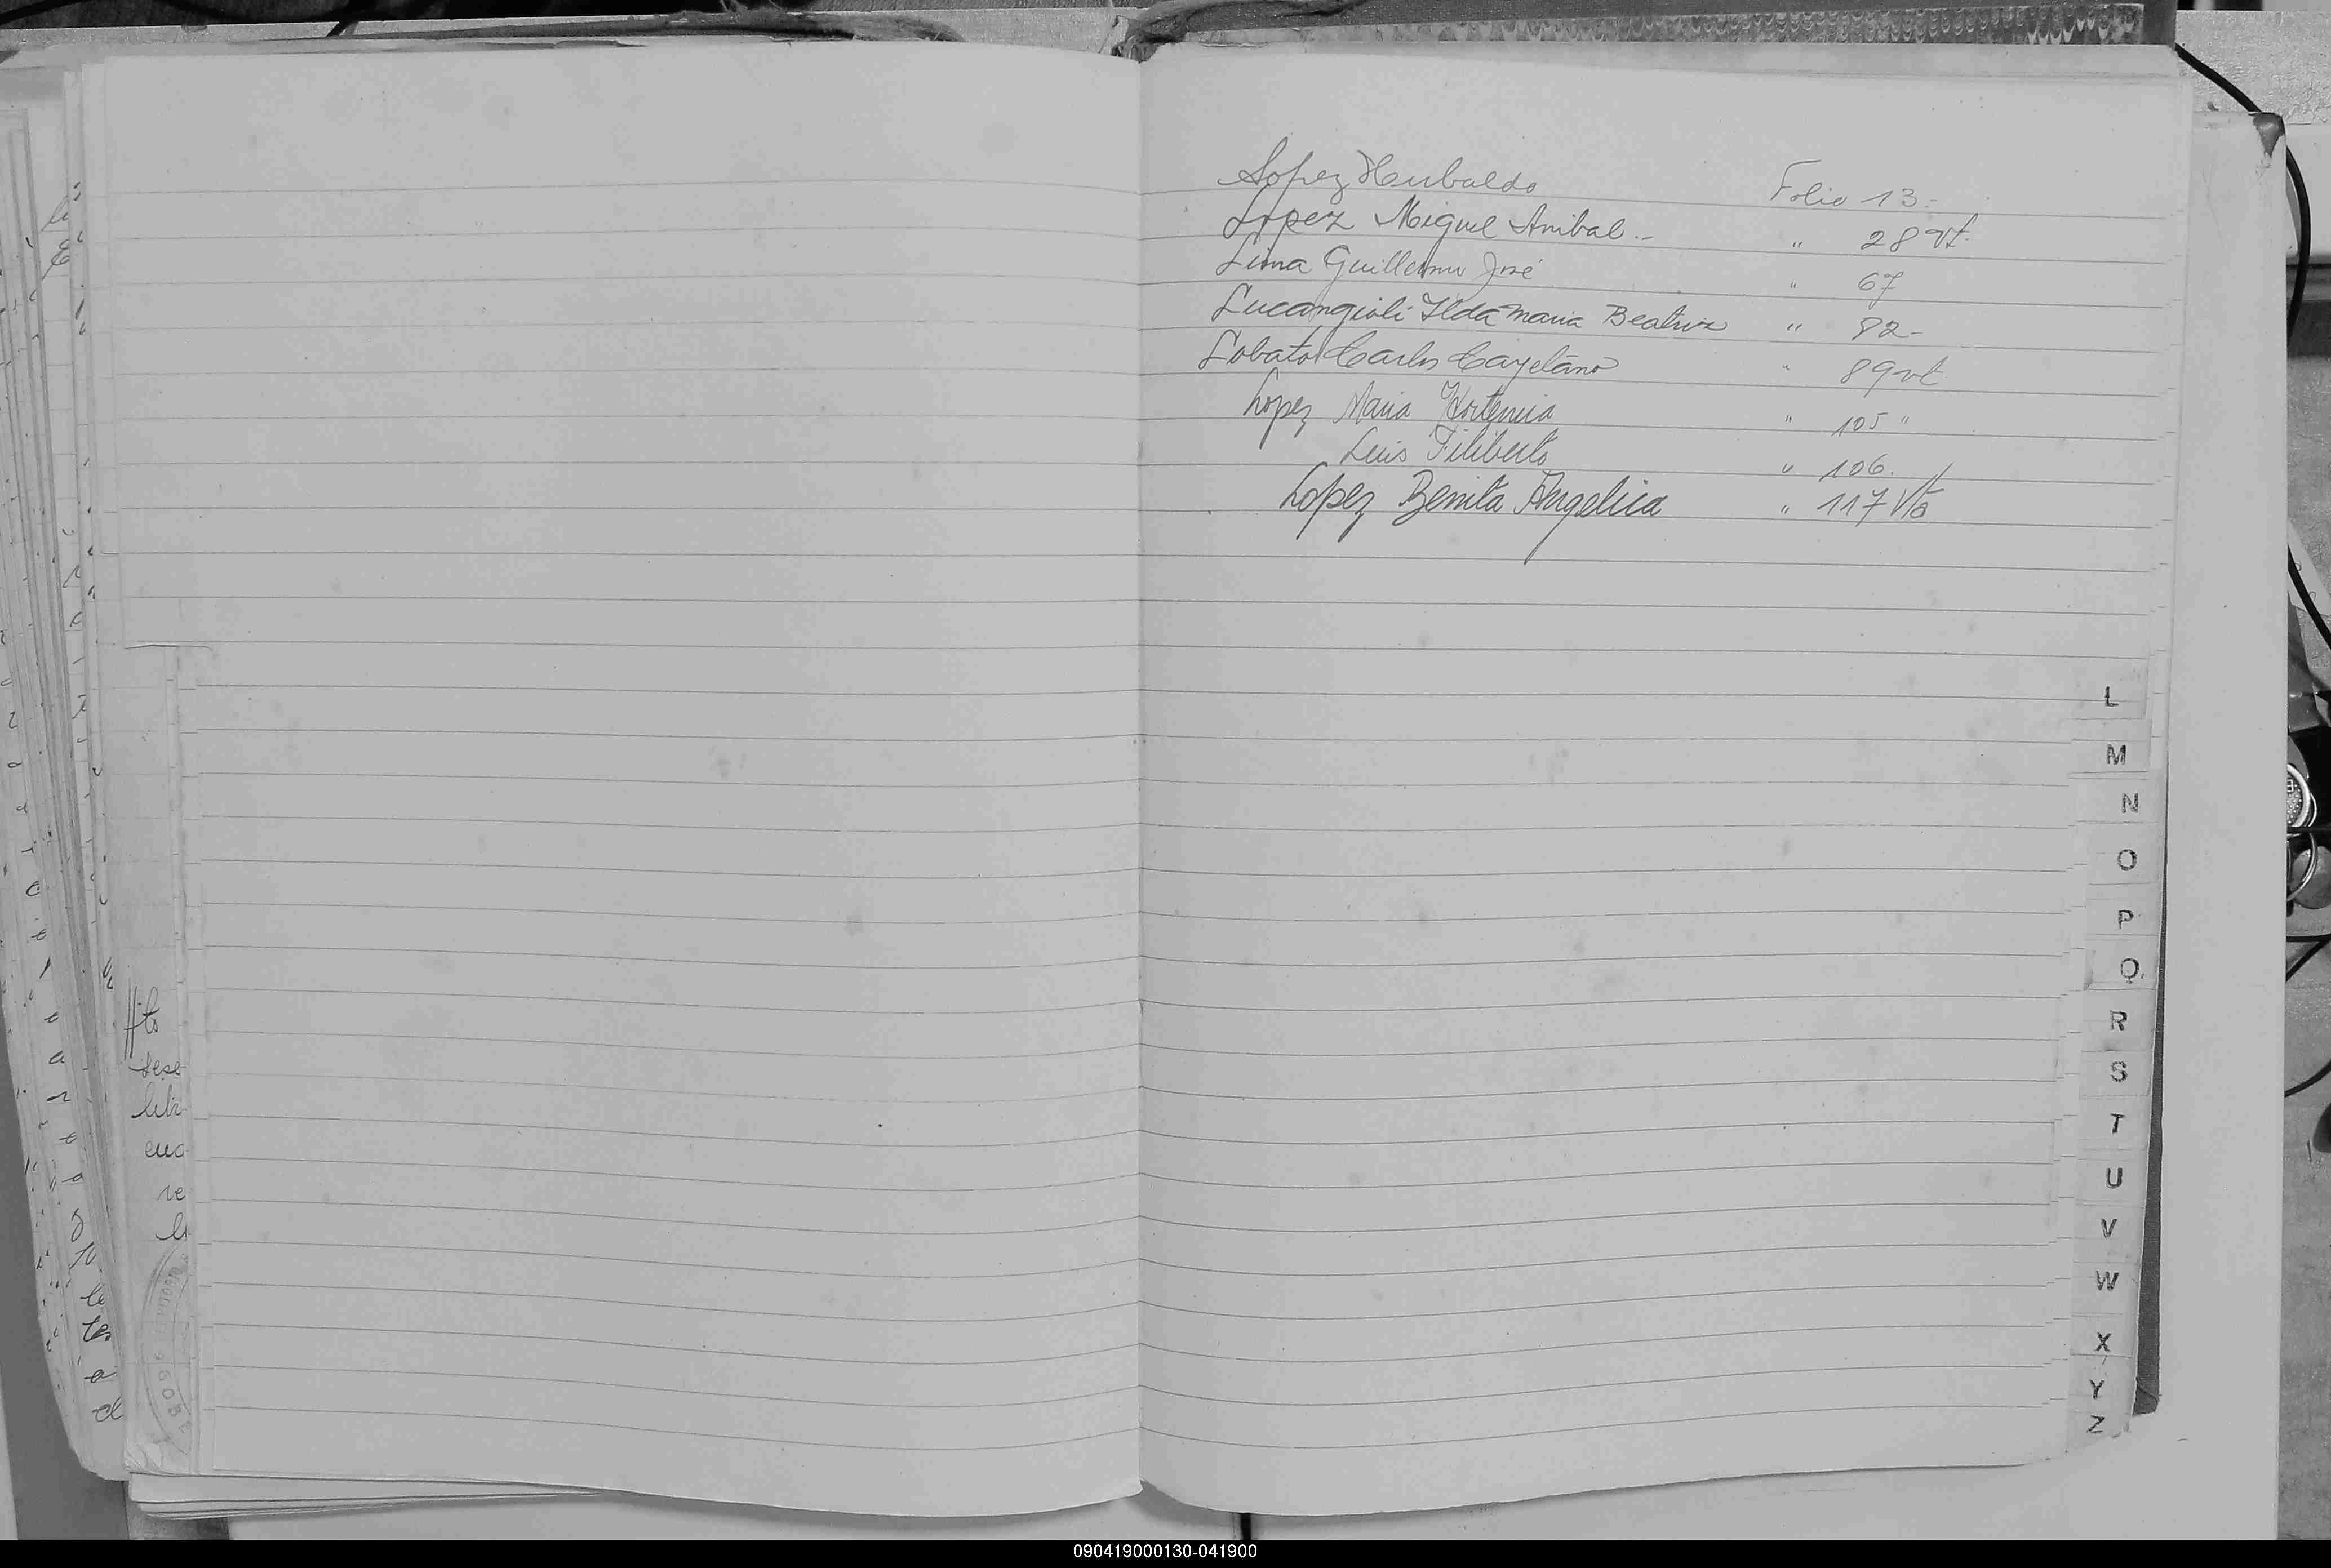 Lopez Hubaldo Folio 13.-
Lopez Miguel Anibal.- " 28 vt.
Lima Guillermo José " 67
Lucangioli Ilda Maria Beatriz " 82-
Lobato Carlos Cayetano " 89 vt
Lopez Maria Hortencia " 105 "
Luis Filiberto " 106.
Lopez Benita Angelica " 117 Vta
L
M
N
O
P
Q
R
S
T
U
V
W
X
Y
Z
090419000130-041900